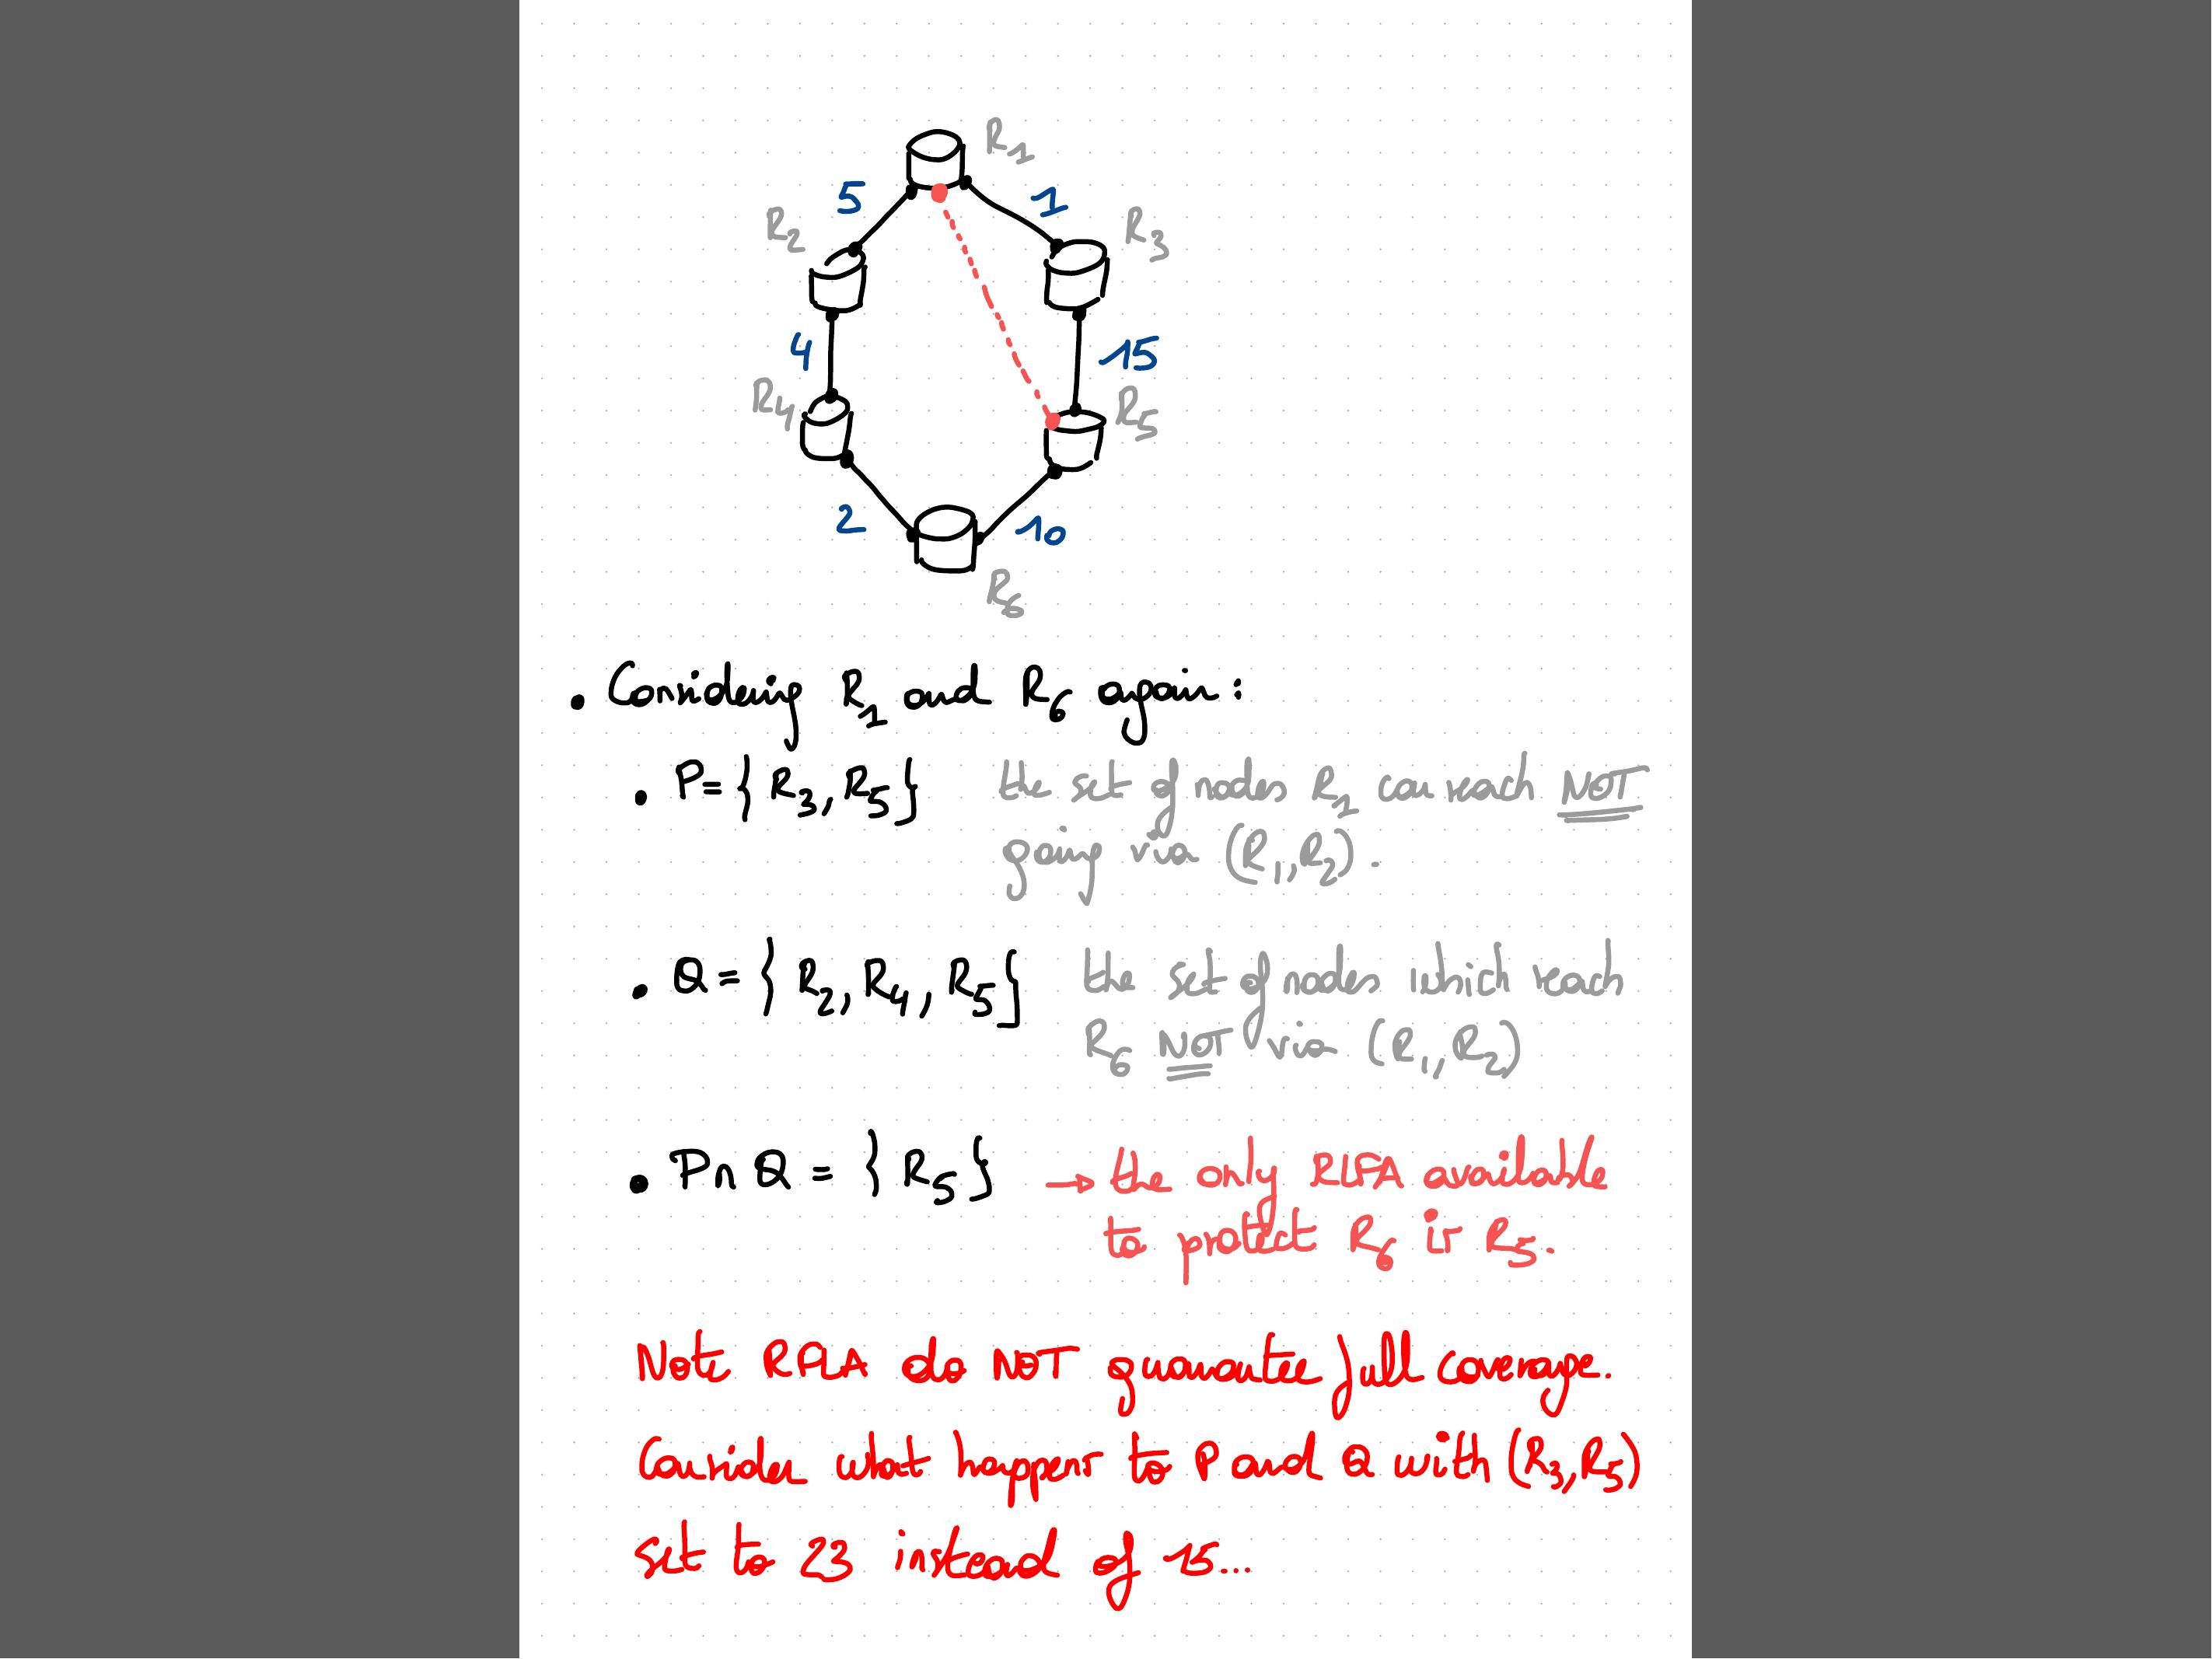 R1
5
1
R2
R3
4
15
R4
R5
2
10
R6
. Considering R1 and R6 again :
. P = { R3, R5 } the set of nodes R1 can reach NOT
going via (R1, R2).
. Q = { R2, R4, R5 } the set of nodes which reach
R6 NOT via (R1, R2)
. P ∩ Q = { R5 } → the only RLFA available
to protect R6 is R5.
Note RLFA do NOT guarantee full coverage.
Consider what happens to P and Q with (R3, R5)
set to 23 instead of 15...